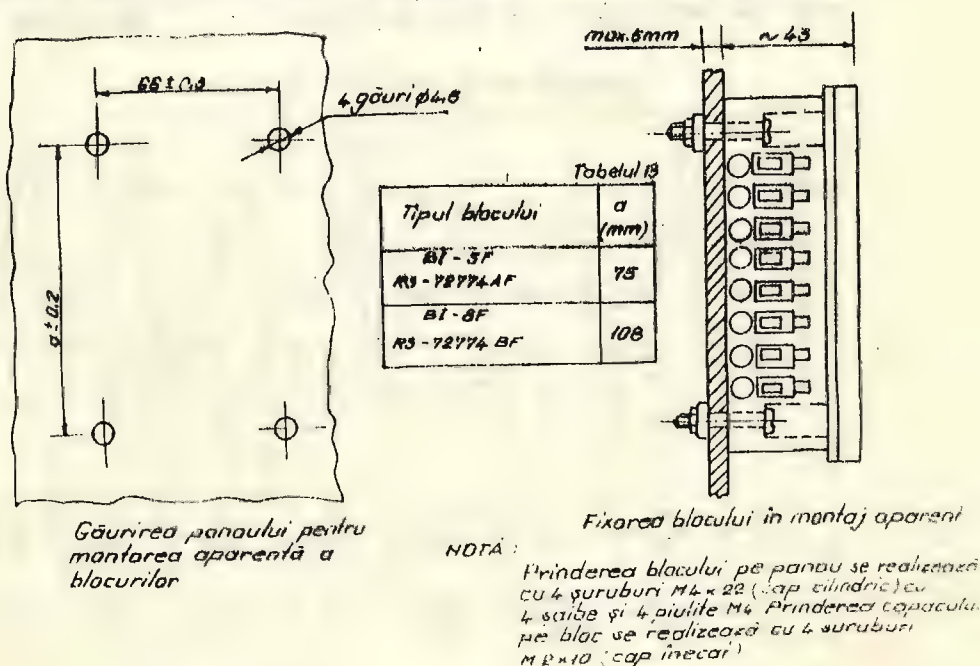 66 ± 0.3
4 găuri ϕ4.8
a ± 0.2
max. 6mm
~ 43
Tabelul 13
Tipul blocului
a
(mm)
BI - 5F
RS - 72774 AF
75
BI - 8F
RS - 72774 BF
108
Găurirea panoului pentru
montarea aparentă a
blocurilor
Fixarea blocului în montaj aparent
NOTĂ :
Prinderea blocului pe panou se realizează
cu 4 șuruburi M4 × 22 (cap cilindric) cu
4 saibe și 4 piulite M4 Prinderea capacului
pe bloc se realizează cu 4 suruburi
M2×10 (cap înecat)